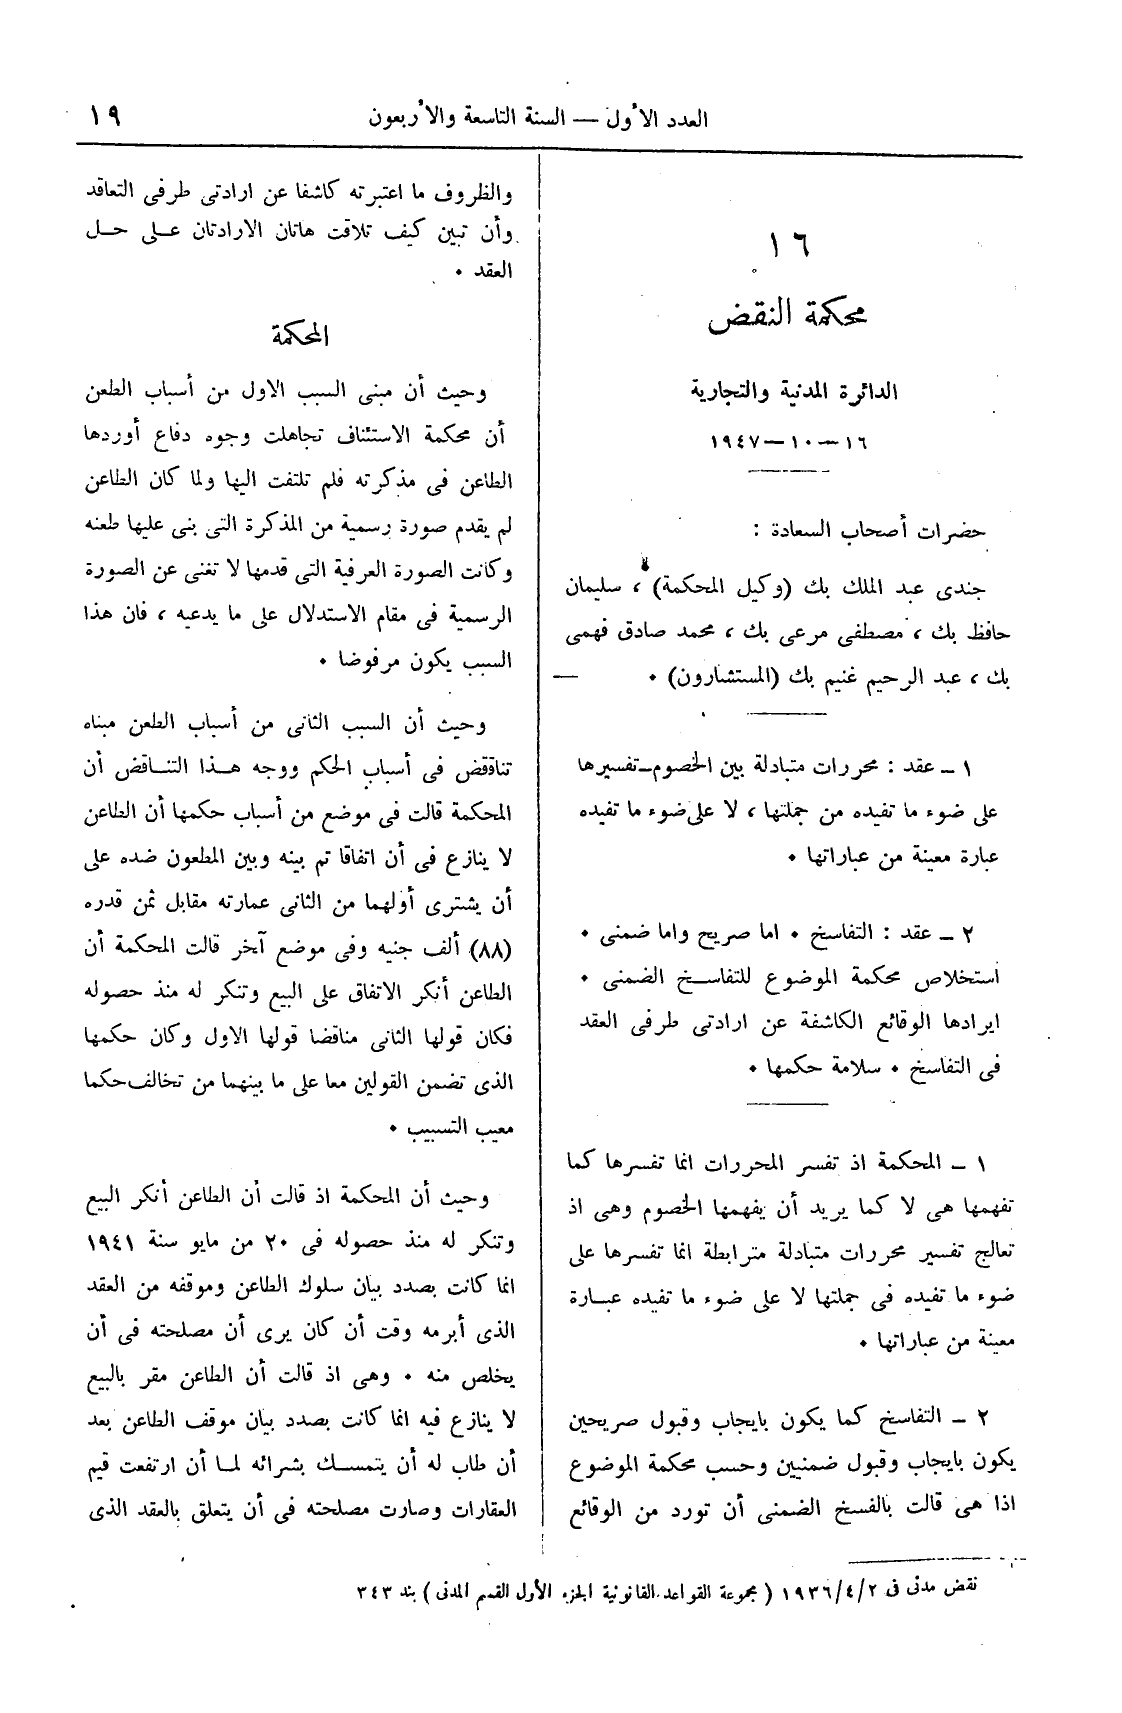 العدد الأول — السنة التاسعة والأربعون
١٩
١٦
محكمة النقض
الدائرة المدنية والتجارية
١٦—١٠—١٩٤٧
حضرات أصحاب السعادة :
جندى عبد الملك بك (وكيل المحكمة) ، سليمان
حافظ بك ، مصطفى مرعى بك ، محمد صادق فهمى
بك ، عبد الرحيم غنيم بك (المستشارون) ٠
١ ـ عقد : محررات متبادلة بين الخصوم ـ تفسيرها
على ضوء ما تفيده من جملتها ، لا على ضوء ما تفيده
عبارة معينة من عباراتها ٠
٢ ـ عقد : التفاسخ ٠ اما صريح واما ضمنى ٠
استخلاص محكمة الموضوع للتفاسخ الضمنى ٠
ايرادها الوقائع الكاشفة عن ارادتى طرفى العقد
فى التفاسخ ٠ سلامة حكمها ٠
١ ـ المحكمة اذ تفسر المحررات انما تفسرها كما
تفهمها هى لا كما يريد أن يفهمها الخصوم وهى اذ
تعالج تفسير محررات متبادلة مترابطة انما تفسرها على
ضوء ما تفيده فى جملتها لا على ضوء ما تفيده عبارة
معينة من عباراتها ٠
٢ ـ التفاسخ كما يكون بايجاب وقبول صريحين
يكون بايجاب وقبول ضمنيين وحسب محكمة الموضوع
اذا هى قالت بالفسخ الضمنى أن تورد من الوقائع
والظروف ما اعتبرته كاشفا عن ارادتى طرفى التعاقد
وأن تبين كيف تلاقت هاتان الارادتان على حل
العقد ٠
المحكمة
وحيث أن مبنى السبب الاول من أسباب الطعن
أن محكمة الاستئناف تجاهلت وجوه دفاع أوردها
الطاعن فى مذكرته فلم تلتفت اليها ولما كان الطاعن
لم يقدم صورة رسمية من المذكرة التى بنى عليها طعنه
وكانت الصورة العرفية التى قدمها لا تغنى عن الصورة
الرسمية فى مقام الاستدلال على ما يدعيه ، فان هذا
السبب يكون مرفوضا ٠
وحيث أن السبب الثانى من أسباب الطعن مبناه
تناققض فى أسباب الحكم ووجه هذا التناقض أن
المحكمة قالت فى موضع من أسباب حكمها أن الطاعن
لا ينازع فى أن اتفاقا تم بينه وبين المطعون ضده على
أن يشترى أولهما من الثانى عمارته مقابل ثمن قدره
(٨٨) ألف جنيه وفى موضع آخر قالت المحكمة أن
الطاعن أنكر الاتفاق على البيع وتنكر له منذ حصوله
فكان قولها الثانى مناقضا قولها الاول وكان حكمها
الذى تضمن القولين معا على ما بينهما من تخالف حكما
معيب التسبيب ٠
وحيث أن المحكمة اذ قالت أن الطاعن أنكر البيع
وتنكر له منذ حصوله فى ٢٠ من مايو سنة ١٩٤١
انما كانت بصدد بيان سلوك الطاعن وموقفه من العقد
الذى أبرمه وقت أن كان يرى أن مصلحته فى أن
يخلص منه ٠ وهى اذ قالت أن الطاعن مقر بالبيع
لا ينازع فيه انما كانت بصدد بيان موقف الطاعن بعد
أن طاب له أن يتمسك بشرائه لما أن ارتفعت قيم
العقارات وصارت مصلحته فى أن يتعلق بالعقد الذى
نقض مدنى فى ١٩٣٦/٤/٢ ( مجموعة القواعد القانونية الجزء الأول القسم المدنى ) بند ٣٤٣